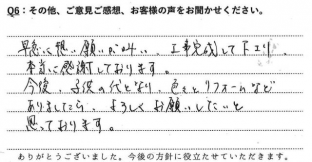 Q6：その他、ご意見ご感想、お客様の声をお聞かせください。
早急に想い願いが叶い、工事完成して下さり
本当に感謝しております。
今後、子供の代となり、色々とリフォームなど
ありましたら、よろしくお願いしたいと
思っております。
ありがとうございました。今後の方針に役立たせていただきます。